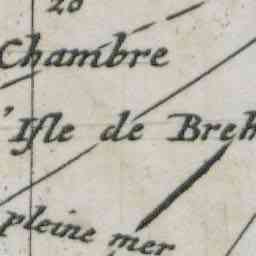 20
Chambre
'Isle de Breh
pleine mer